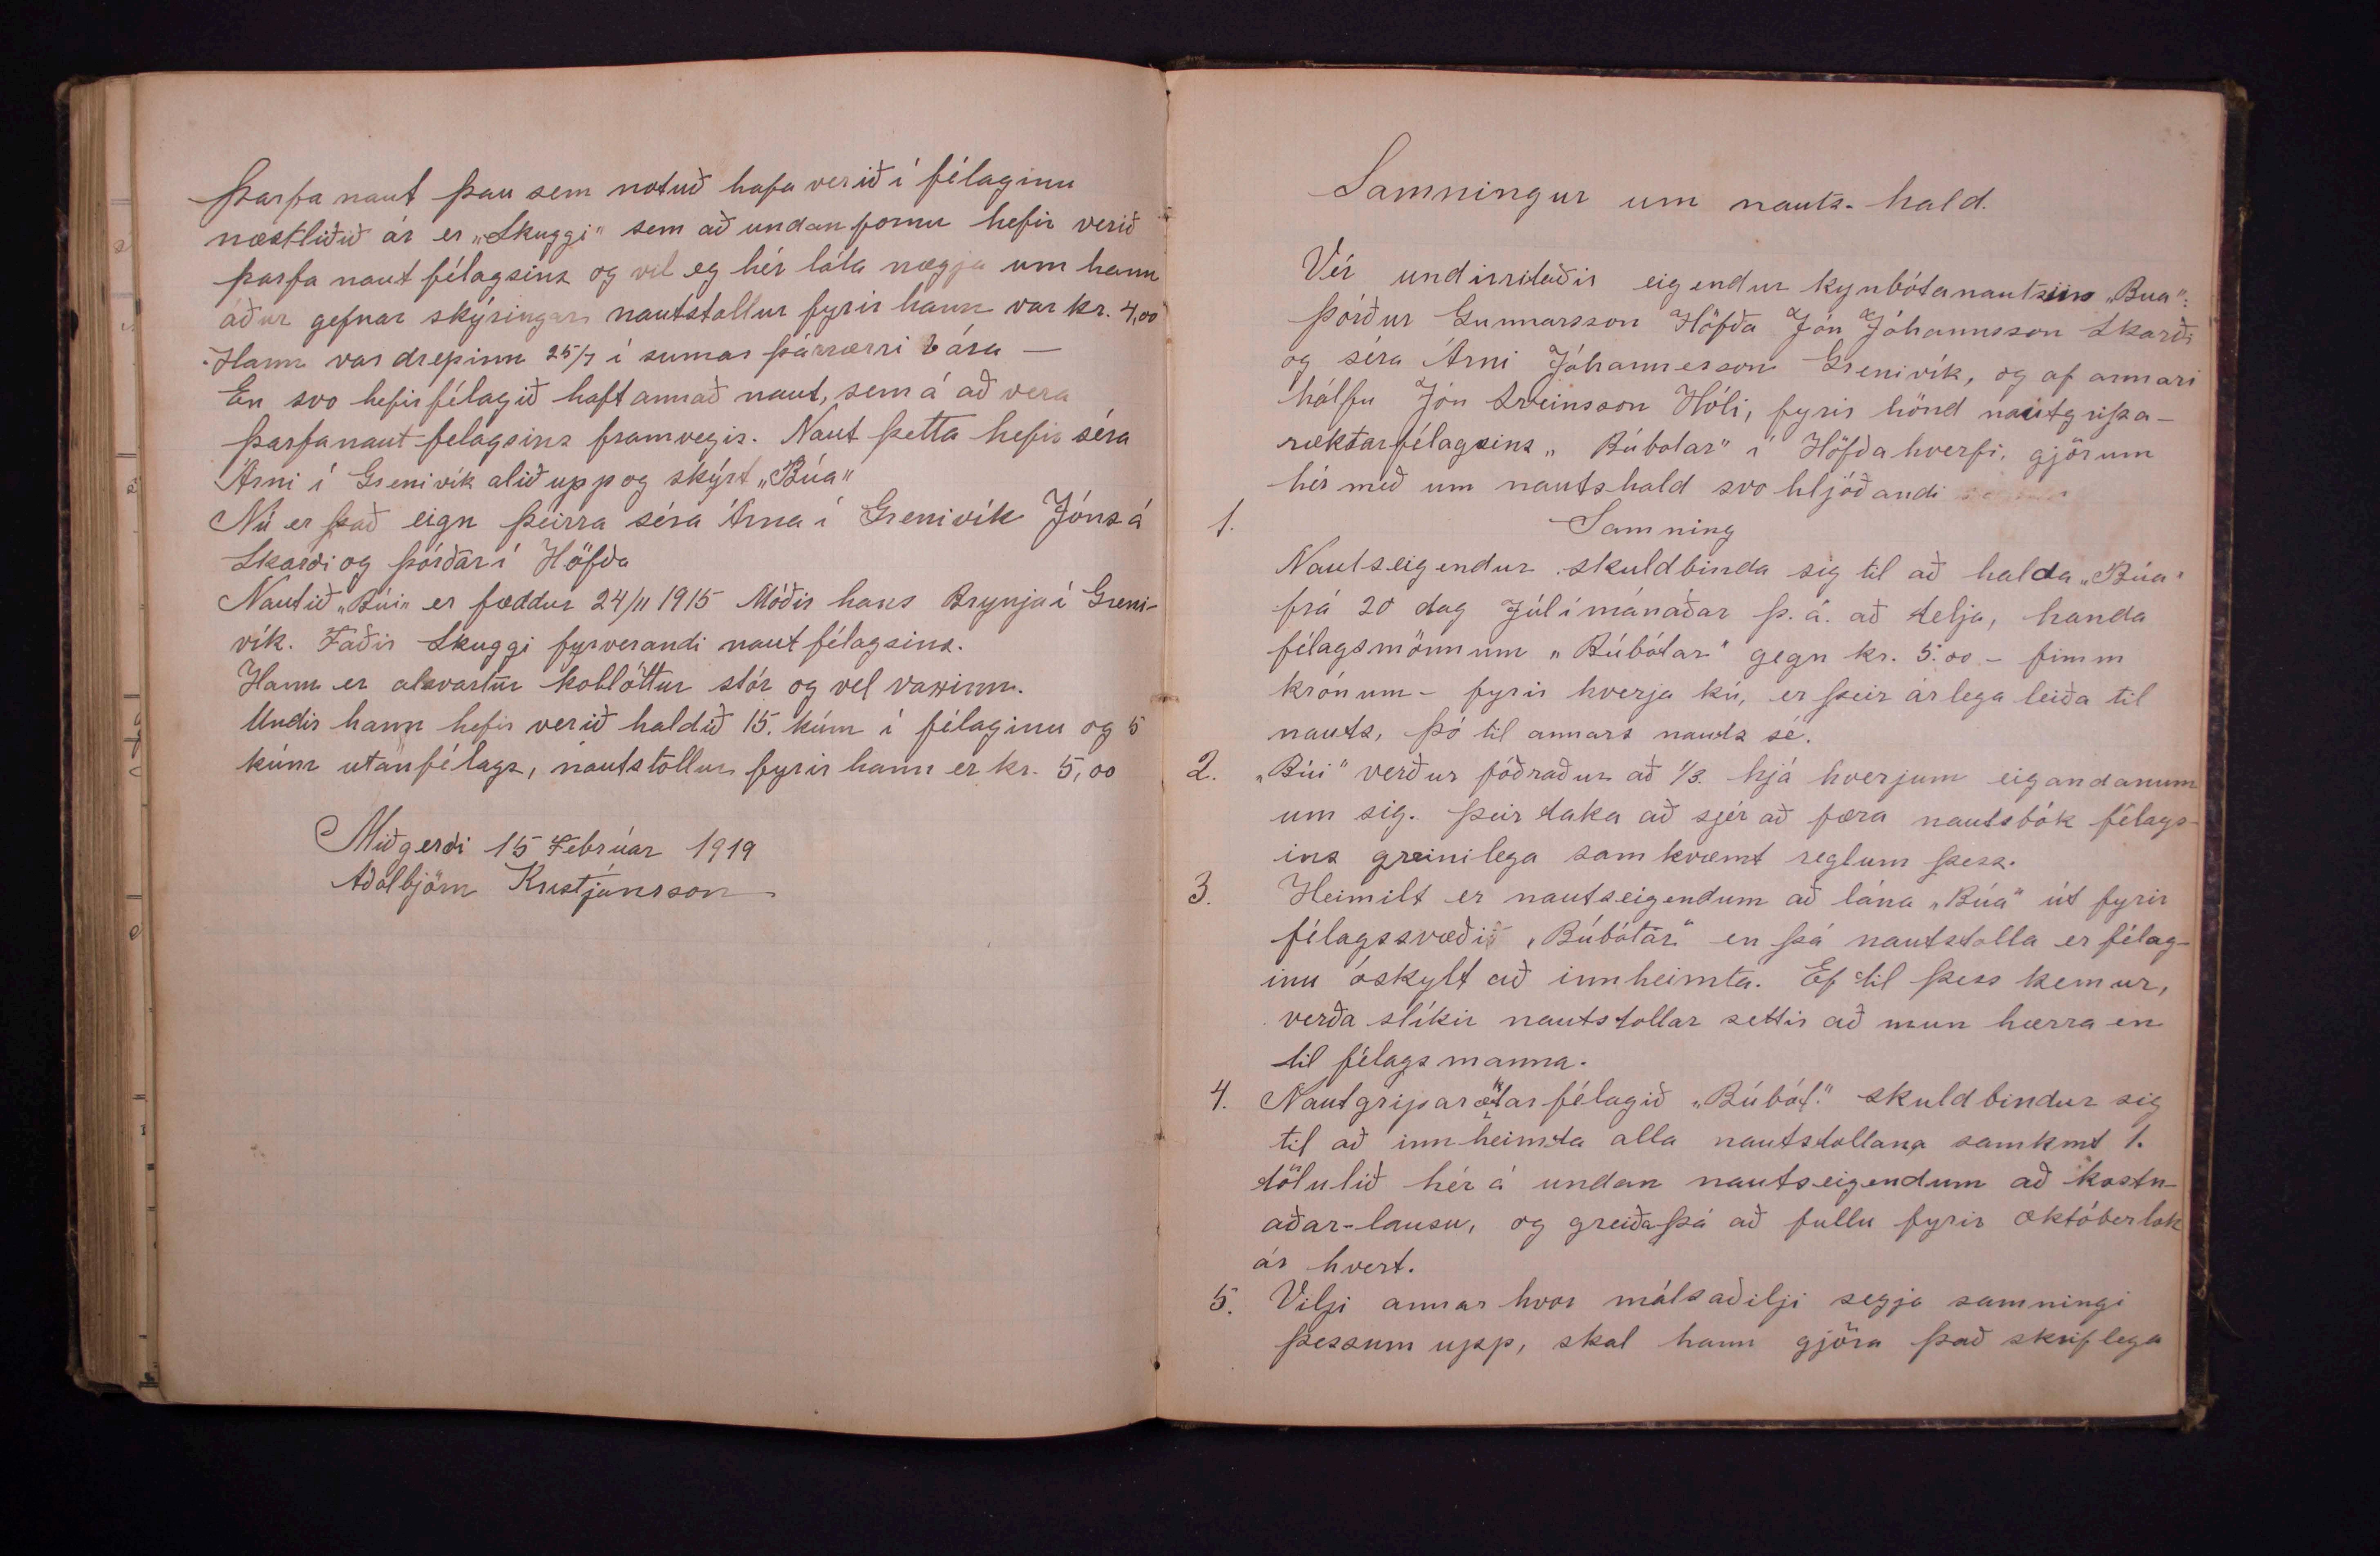 Þarfa naut þau sem notuð hafa verið í félaginu
næstliðið ár er „Skuggi" sem að undanförnu hefir verið
þarfa naut félagsins og vil eg hér láta nægja um hann
áður gefnar skýringar nautstollur fyrir hann var kr. 4,00
Hann var drepinn 25/7 í sumar þá nærri 6 ára —
En svo hefir félagið haft annað naut, sem á að vera
þarfanaut felagsins framvegis. Naut þetta hefir séra
Árni í Grenivík alið upp og skýrt „Búa"
Nú er það eign þeirra séra Árna í Grenivík Jóns á
Skarði og þórðar í Höfða
Nautið „Búi" er fæddur 24/11 1915 Móðir hans Brynja í Greni-
vík. Faðir Skuggi fyrverandi naut félagsins.
Hann er alsvartur kollóttur stór og vel vaxinn.
Undir hann hefir verið haldið 15. kúm í félaginu og 5
kúm utanfélags, nautstollur fyrir hann er kr. 5,00
Miðgerdi 15 Febrúar 1919
Aðalbjörn Kristjánsson
Samningur um nauts-hald.
Vér undirritaðir eigendur kynbótanautsins „Bua":
Þórður Gunnarsson Höfða Jón Jóhannsson Skarði
og séra Árni Jóhannesson Grenivík, og af annari
hálfu Jón Sveinsson Hóli, fyrir hönd nautgripa-
ræktarfélagsins „Búbotar" í Höfðahverfi, gjörum
hér með um nautshald svo hljóðandi
Samning
1.
Nautseigendur skuldbinda sig til að halda „Búa"
frá 20 dag Júlímánaðar þ. á. að telja, handa
félagsmönnum „Búbótar" gegn kr. 5.00 - fimm
krónum - fyrir hverja kú, er þeir árlega leiða til
nauts, þó til annars nauts sé.
2. „Búi" verður fóðraður að 1/3. hjá hverjum eigandanum
um sig. Þeir taka að sjer að færa nautsbók félags-
ins greinilega samkvæmt reglum þess.
3. Heimilt er nautseigendum að lána „Búa" út fyrir
félagssvæði „Búbótar" en þá nautstolla er félag-
inu óskylt að innheimta. Ef til þess kemur,
verða slíkir nautstollar settir að mun hærra en
til félagsmanna.
4. Nautgriparæktarfélagið „Búbót." skuldbindur sig
til að innheimta alla nautstollana samkmt 1.
tölulið hér á undan nautseigendum að kostn-
aðar-lausu, og greiða þá að fullu fyrir októberlok
ár hvert.
5. Vilji annar hvor málsaðilji segja samningi
þessum upp, skal hann gjöra það skriflega